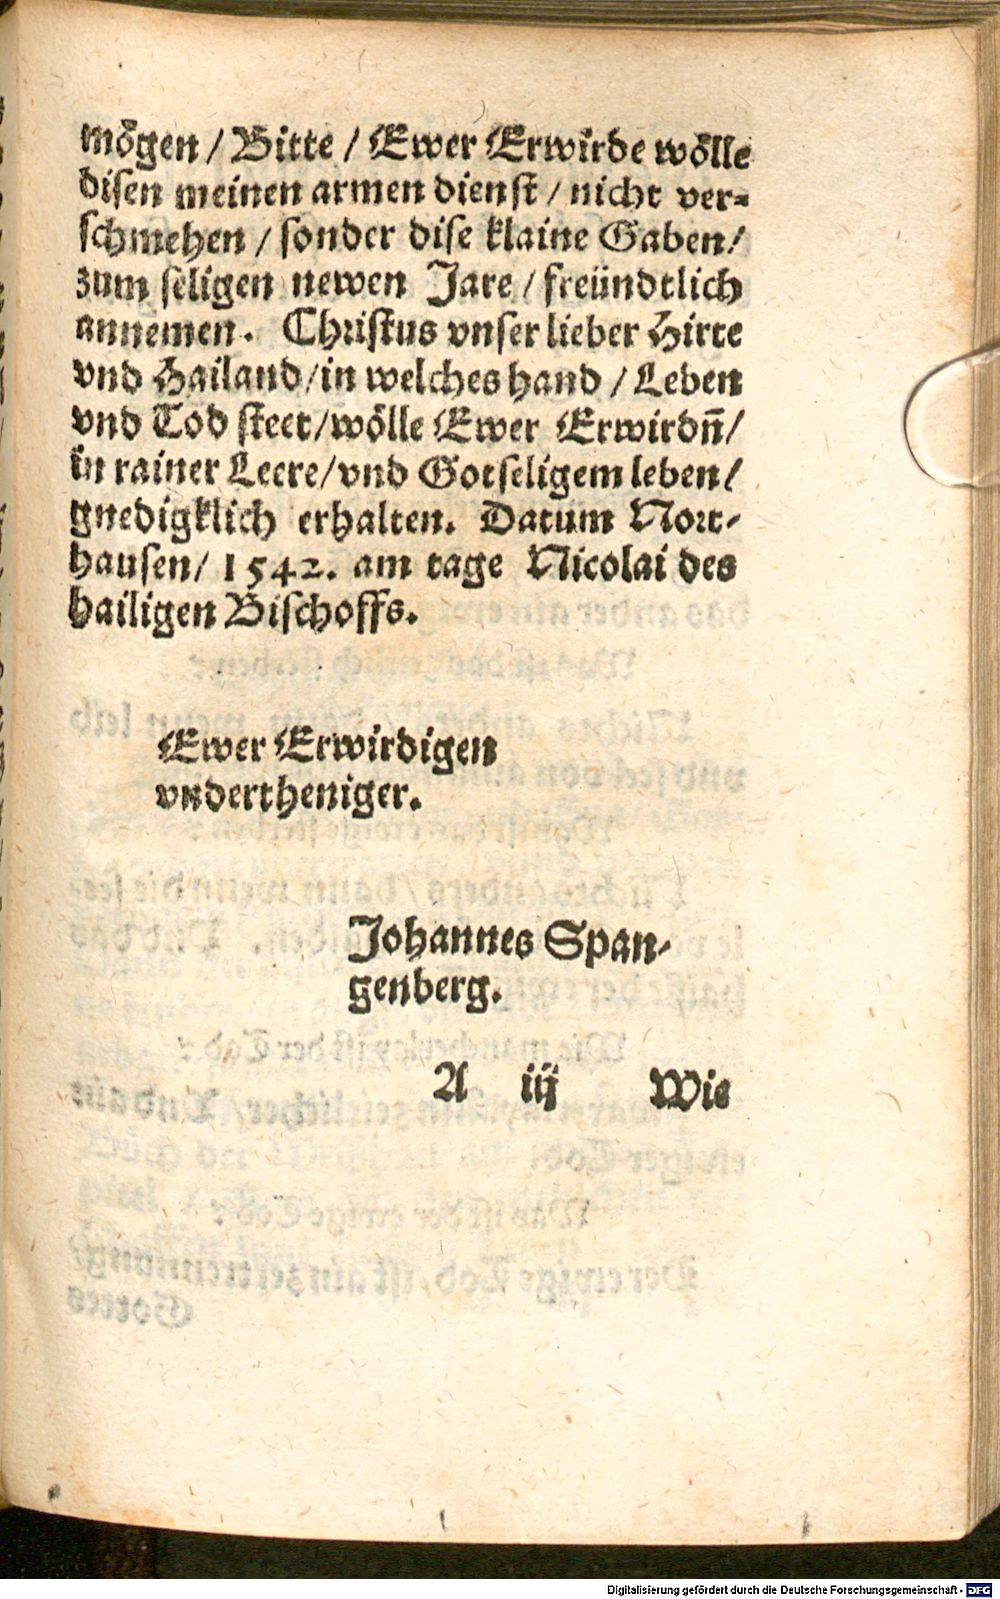 mögen / Bitte / Ewer Erwirde wölle
disen meinen armen dienst / nicht ver=
schmehen / sonder dise klaine Gaben /
zum seligen newen Jare / freündtlich
annemen. Christus vnser lieber Hirte
vnd Hailand / in welches hand / Leben
vnd Tod steet / wölle Ewer Erwirdn̄ /
in rainer Leere / vnd Gotseligem leben /
gnedigklich erhalten. Datum Nort-
hausen / 1542. am tage Nicolai des
hailigen Bischoffs.
Ewer Erwirdigen
vndertheniger.
Johannes Span-
genberg.
A iij Wie
Digitalisierung gefördert durch die Deutsche Forschungsgemeinschaft - DFG